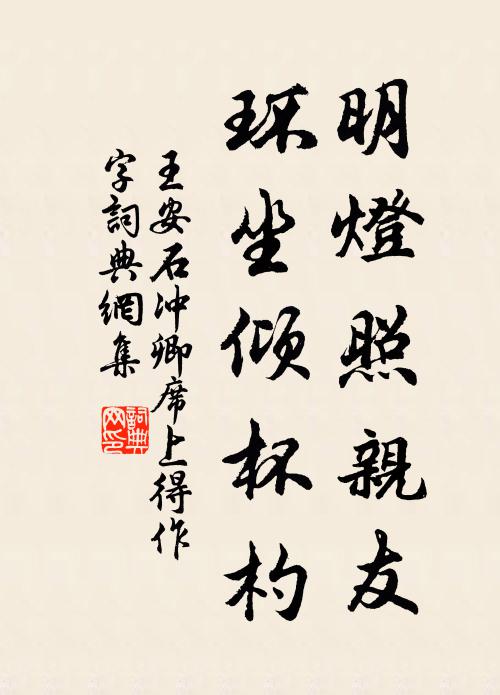 明燈照親友
环坐傾杯杓
王安石冲卿席上得作
字詞典網集
詞典网印